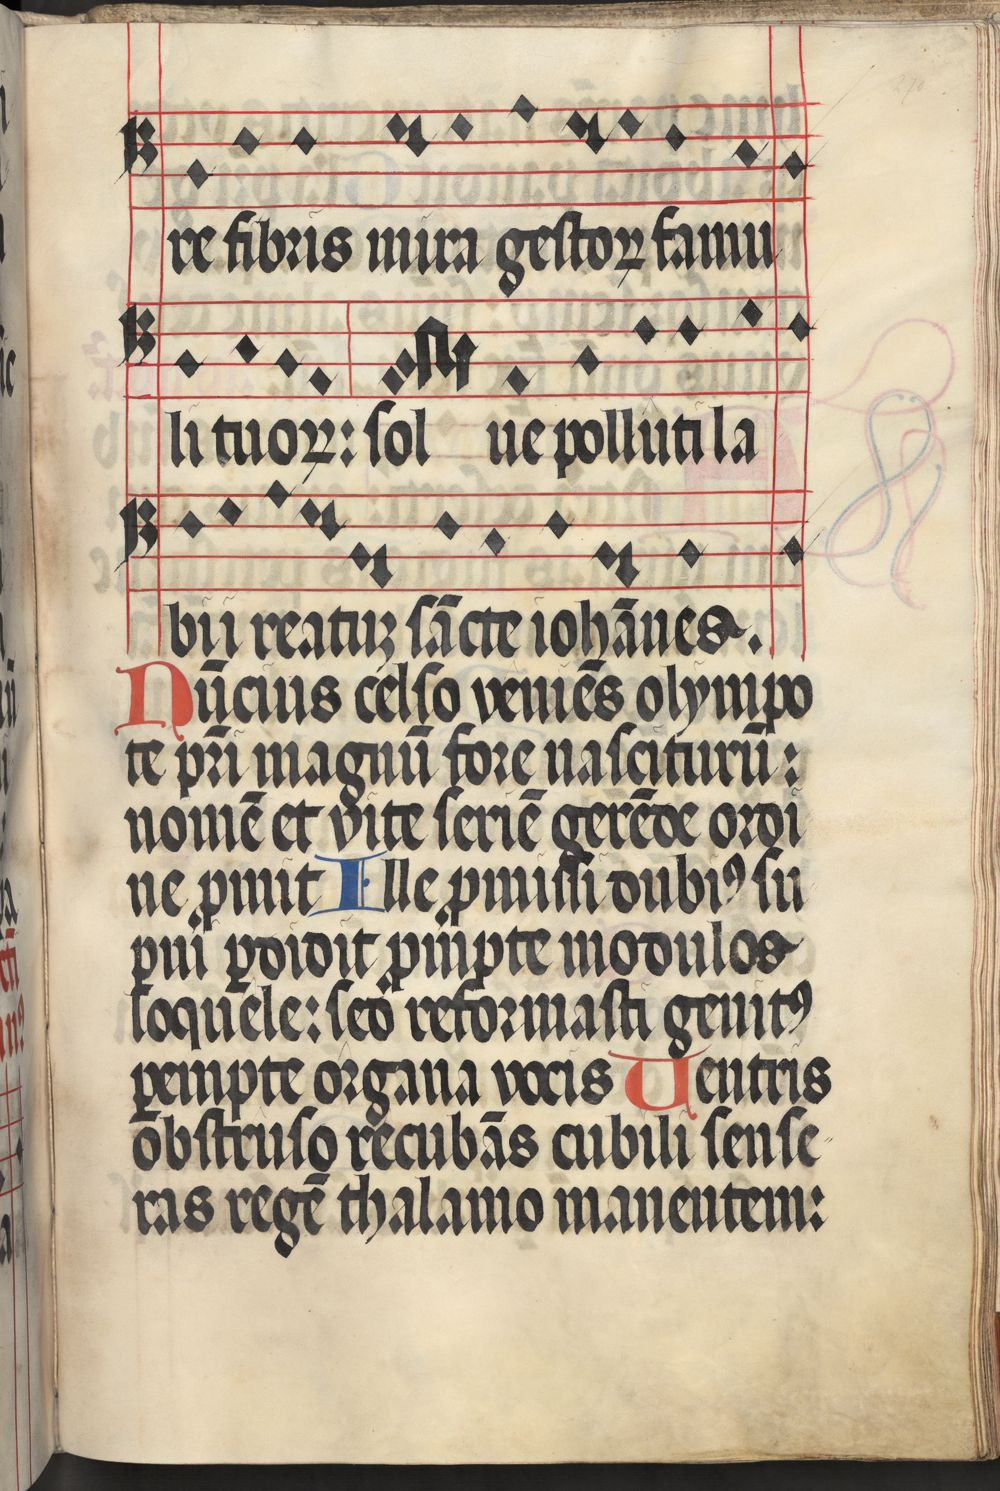 re fibris mira gestoꝝ famu
li tuoꝝ: sol ue polluti la
bii reatuȝ sācte iohānes.
Nūcius celso veniēs olympo
te pr̄i magnū fore nasciturū:
nomē et vite seriē gerēde ordi
ne ꝓmit Ille ꝓmissi dubiꝰ su
ꝑni ꝑdidit ꝓmpte modulos
loquele: sed reformasti genitꝰ
ꝑempte organa vocis Uentris
obstruso recubās cubili sense
ras regē thalamo manentem: